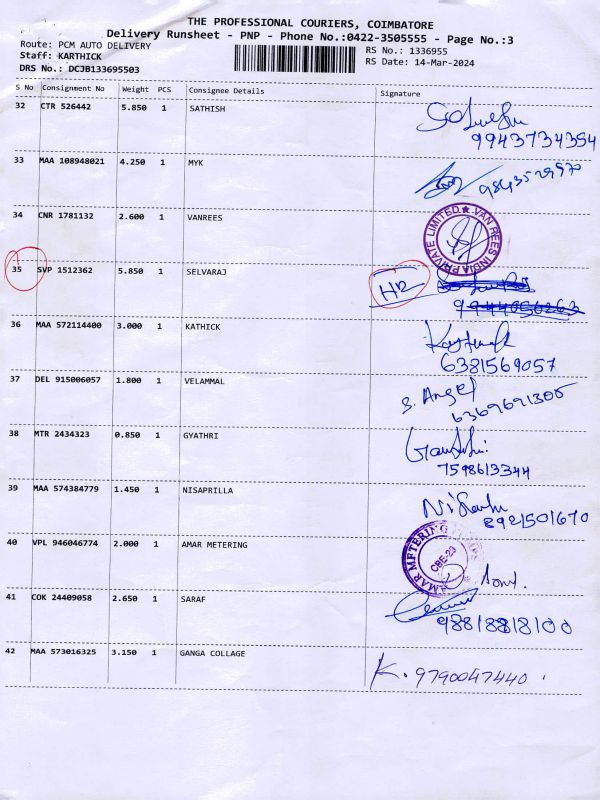 THE PROFESSIONAL COURIERS, COIMBATORE
Delivery Runsheet - PNP - Phone No.:0422-3505555 - Page No.:3
Route: PCM AUTO DELIVERY RS No.: 1336955
Staff: KARTHICK RS Date: 14-Mar-2024
DRS No.: DCJB133695503
S No Consignment No Weight PCS Consignee Details Signature
32 CTR 526442 5.850 1 SATHISH
9943734354
33 MAA 108948021 4.250 1 MYK
9843529970
34 CNR 1781132 2.600 1 VANREES
VAN REES INDIA PRIVATE LIMITED
35 SVP 1512362 5.850 1 SELVARAJ
36 MAA 572114400 3.000 1 KATHICK
6381569057
37 DEL 915006057 1.800 1 VELAMMAL
S. Angel
6369691305
38 MTR 2434323 0.850 1 GYATHRI
7598613344
39 MAA 574384779 1.450 1 NISAPRILLA
8921501670
40 VPL 946046774 2.000 1 AMAR METERING
AMAR METERING
CBE-29
41 COK 24409058 2.650 1 SARAF
42 MAA 573016325 3.150 1 GANGA COLLAGE
K. 9790047440